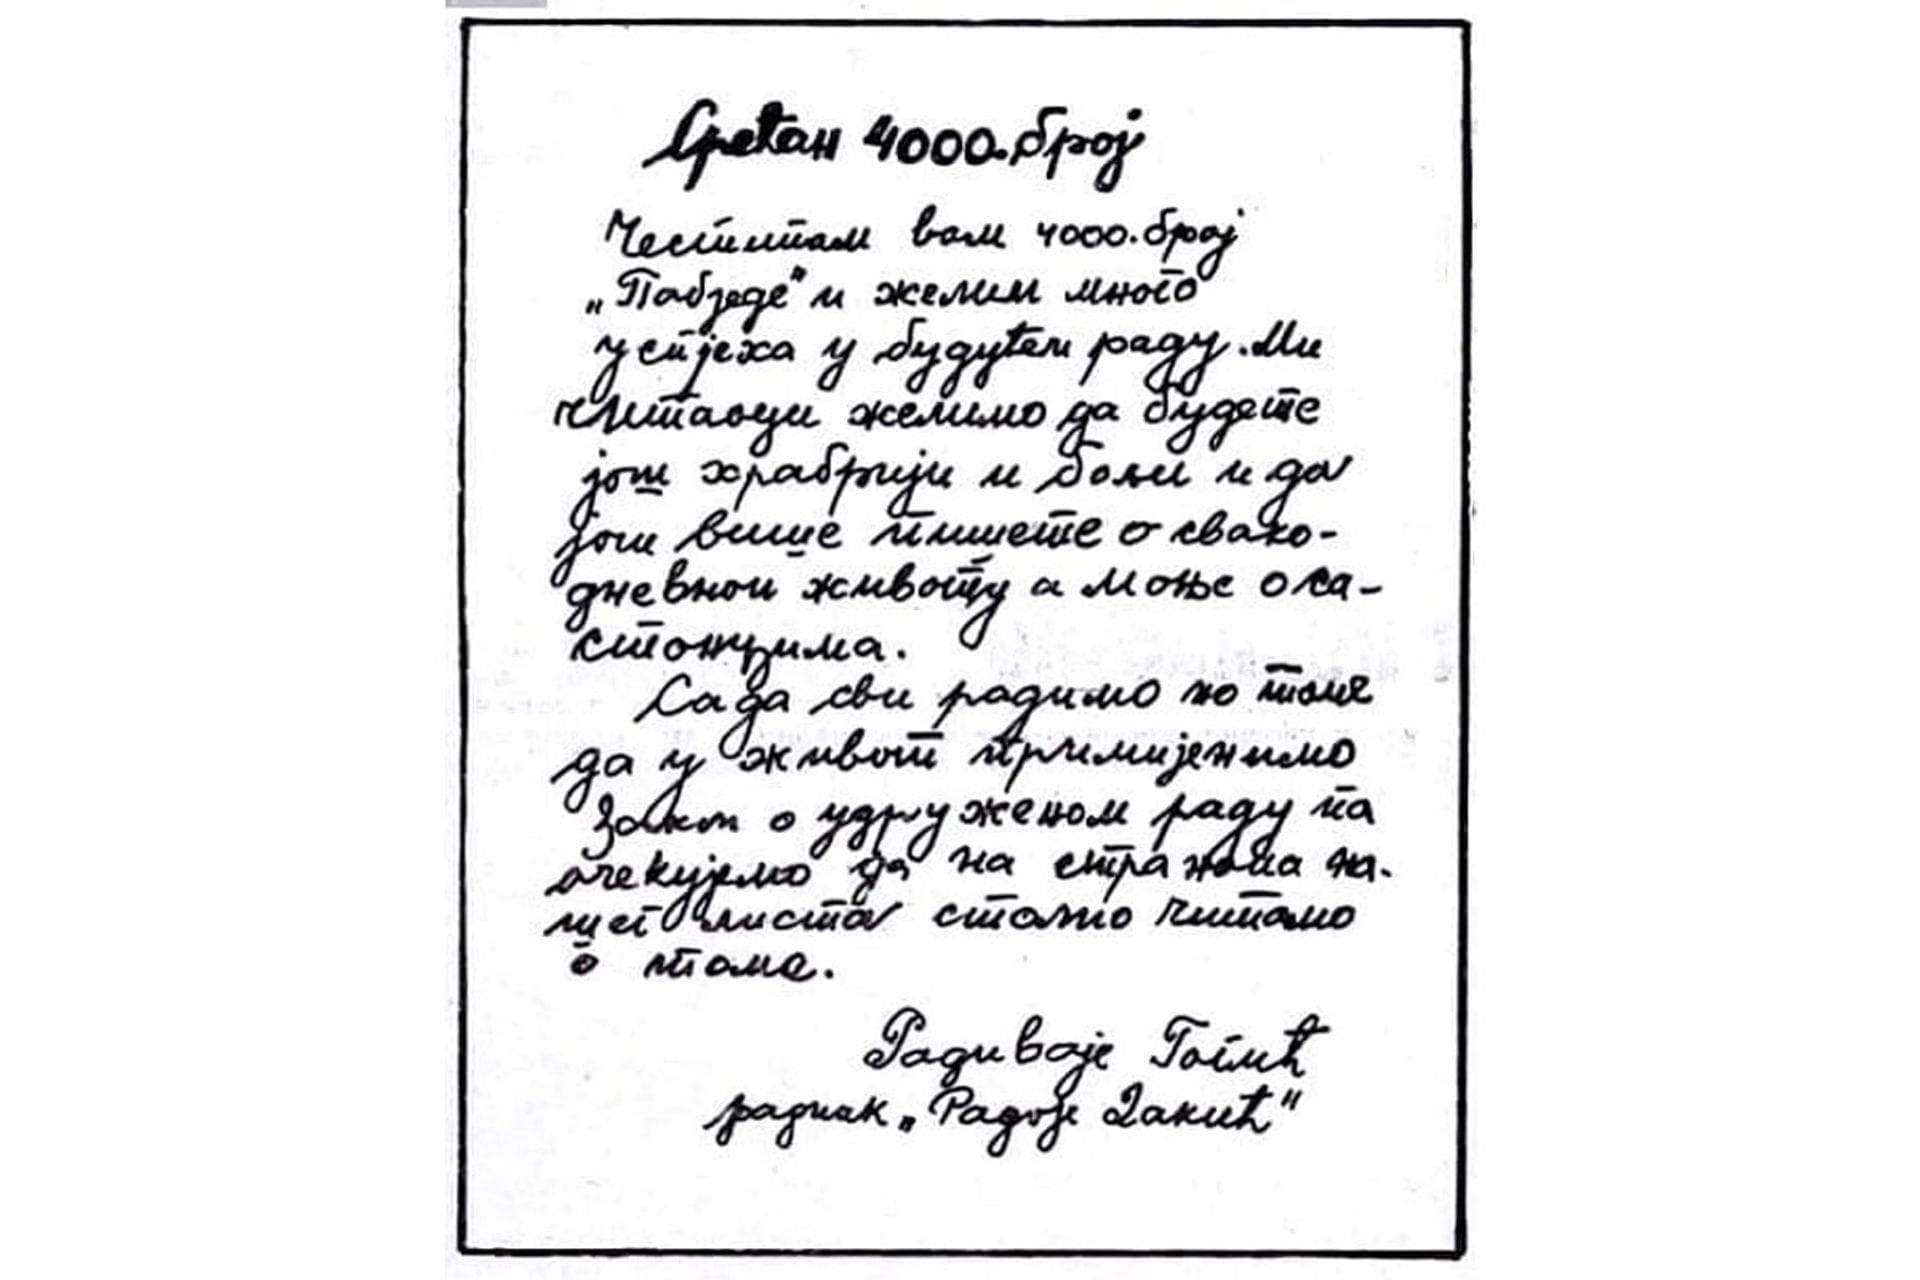 Срећан 4000. број
Честитам вам 4000. број
„Побједе" и желим много
успјеха у будућем раду. Ми
читаоци желимо да будете
још храбрији и бољи и да
још више пишете о свако-
дневном животу а мање о са-
станцима.
Сада сви радимо на томе
да у живот примијенимо
Закон о удруженом раду па
очекујемо да на странама на-
шег листа стално читамо
о томе.
Радивоје
радник „Радоје Дакић"